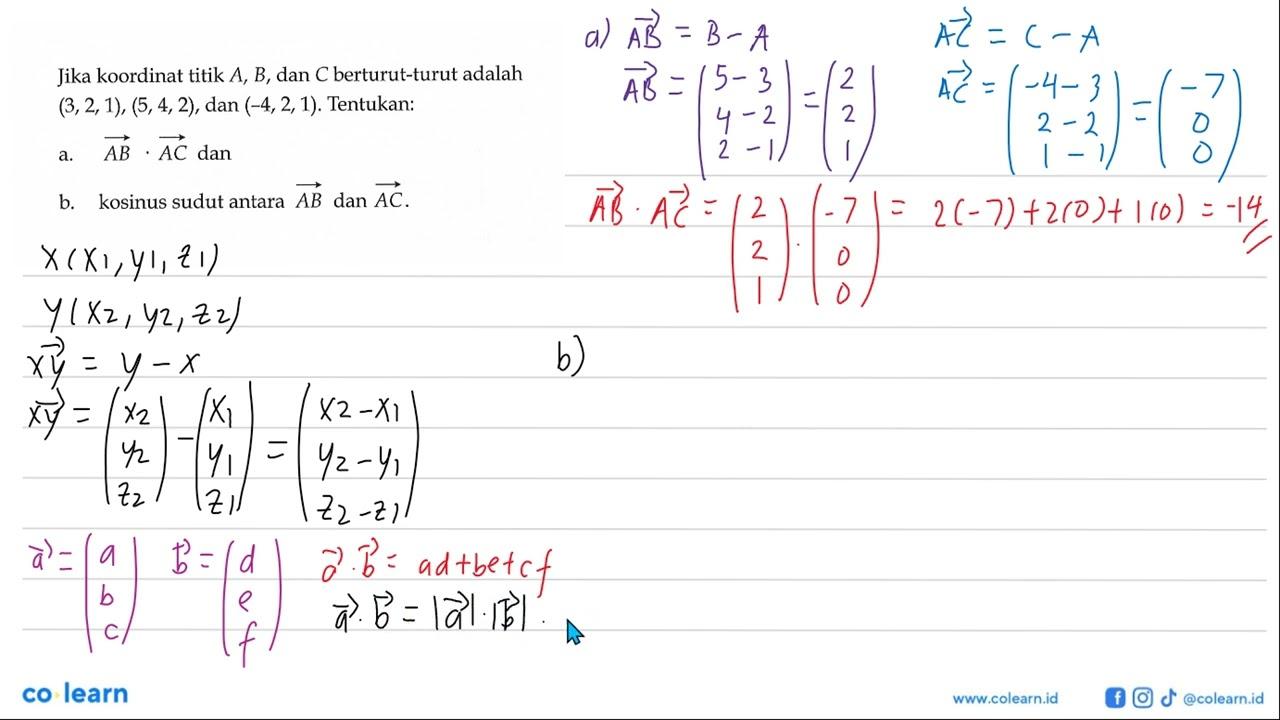 Jika koordinat titik A, B, dan C berturut-turut adalah
(3, 2, 1), (5, 4, 2), dan (–4, 2, 1). Tentukan:
a. \overrightarrow{AB} · \overrightarrow{AC} dan
b. kosinus sudut antara \overrightarrow{AB} dan \overrightarrow{AC}.
X(x1, y1, z1)
Y(x2, y2, z2)
\overrightarrow{xy} = y - x
\overrightarrow{xy} = (x2 y2 z2) - (x1 y1 z1) = (x2-x1 y2-y1 z2-z1)
\vec{a} = (a b c) \vec{b} = (d e f) \vec{a}.\vec{b} = ad+be+cf
\vec{a}.\vec{b} = |\vec{a}|.|\vec{b}| .
a) \overrightarrow{AB} = B - A
\overrightarrow{AB} = (5-3 4-2 2-1) = (2 2 1)
\overrightarrow{AC} = C - A
\overrightarrow{AC} = (-4-3 2-2 1-1) = (-7 0 0)
\overrightarrow{AB} . \overrightarrow{AC} = (2 2 1) . (-7 0 0) = 2(-7)+2(0)+1(0) = -14
b)
co learn
www.colearn.id
@colearn.id